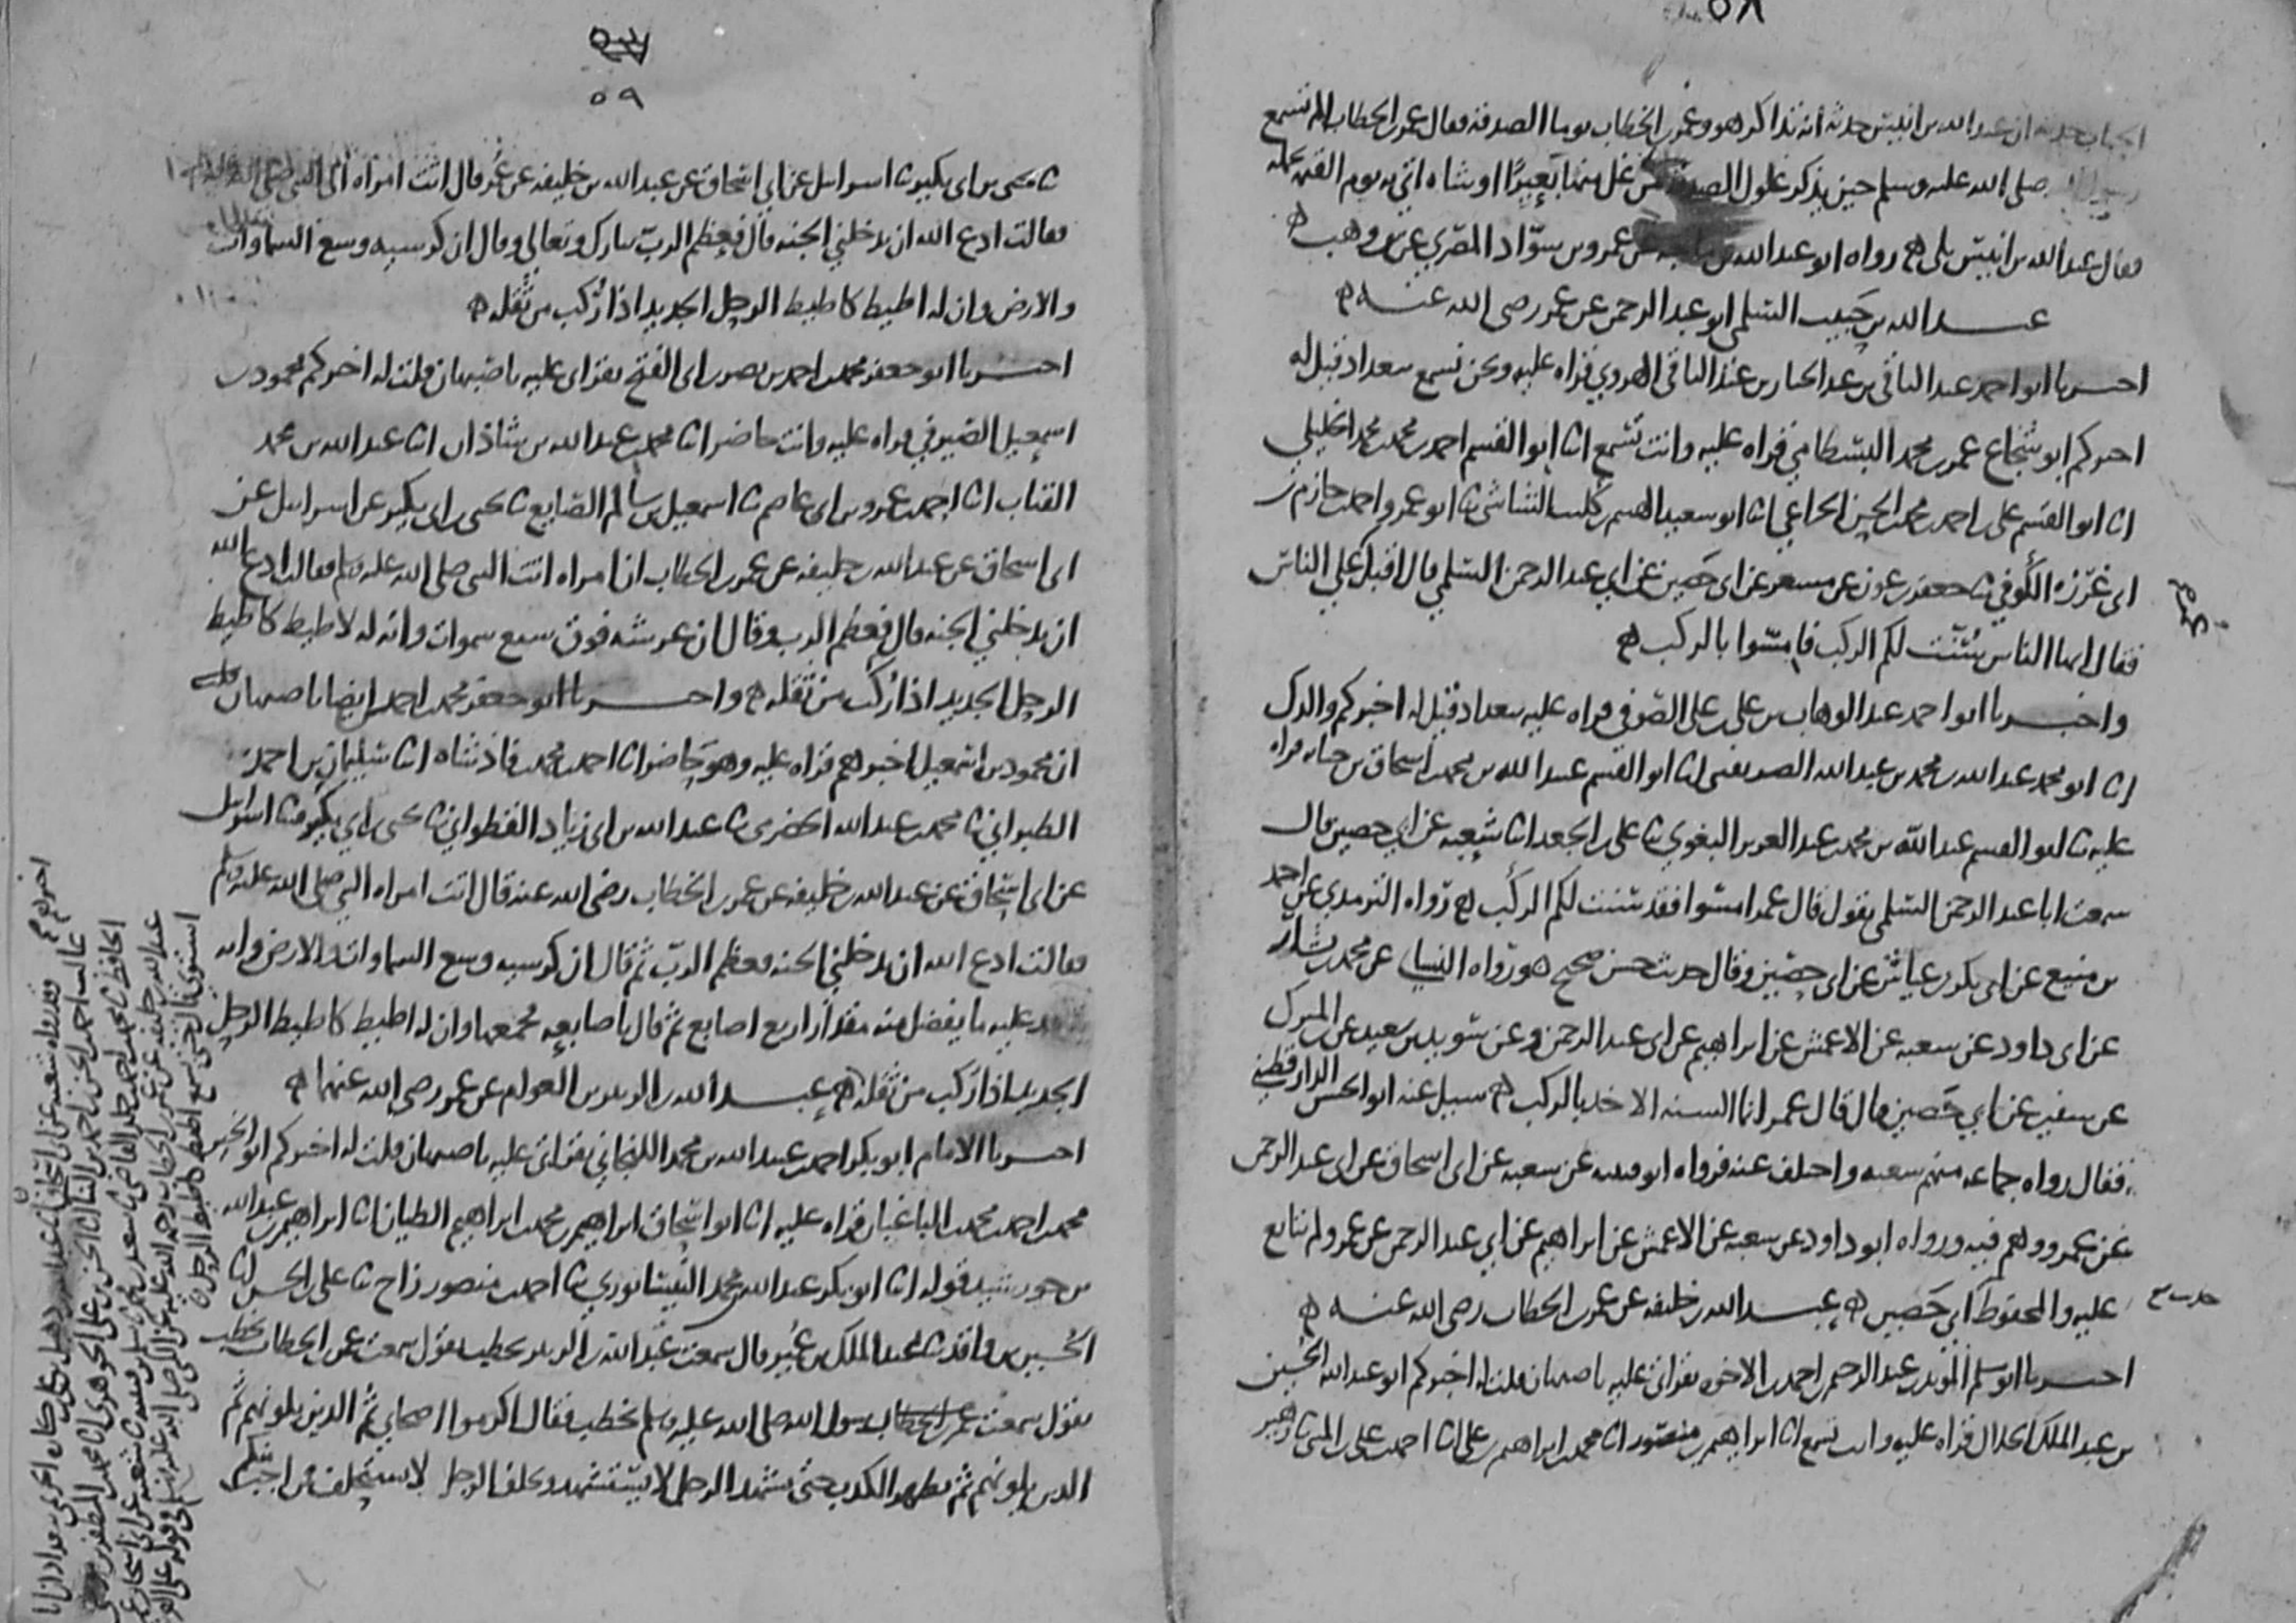 ٥٨
الحباب حدثه ان عبد الله بن انيس حدثه انه تذاكر هو وعمر بن الخطاب يوما الصدقة فقال عمر بن الخطاب الم تسمع
رسول الله صلى الله عليه وسلم حين يذكر غلول الصدقة من غل منها بعيرا او شاه اتي به يوم القيمة يحمله
فقال عبد الله بن انيس بلى ه رواه ابو عبد الله بن ماجه عن عمرو بن سواد المصري عن بن وهب ه
عبد الله بن حبيب السلمي ابو عبد الرحمن عن عمر رضى الله عنه ه
اخبرنا ابو احمد عبد الباقي بن عبد الجبار بن عبد الباقي الهروي قراه عليه ونحن نسمع ببغداد قيل له
اخبركم ابو شجاع عمر بن محمد البسطامي قراه عليه وانت تسمع انا ابو القسم احمد بن محمد بن محمد الخليلي
انا ابو القسم على بن احمد بن محمد بن الحسن الخزاعي انا ابو سعيد الهيثم بن كليب الشاشي نا ابو عمرو احمد بن حازم بن
ابى غرزة الكوفي نا جعفر بن عون عن مسعر عن ابى حصين عن ابي عبد الرحمن السلمي قال اقبل على الناس
فقال ايها الناس سنت لكم الركب فامسوا بالركب ه
واخبرنا ابو احمد عبد الوهاب بن على بن على الصوفى قراه عليه ببغداد قيل له اخبركم والدك
انا ابو محمد عبد الله بن محمد بن عبد الله الصريفيني انا ابو القسم عبيد الله بن محمد بن اسحاق بن حبابه قراه
عليه نا ابو القسم عبد الله بن محمد بن عبد العزيز البغوي نا على بن الجعد انا شعبه عن ابي حصين قال
سمعت ابا عبد الرحمن السلمي يقول قال عمر امسوا فقد سنت لكم الركب ه رواه الترمذي عن احمد
بن منيع عن ابى بكر بن عياش عن ابى حصين وقال حديث حسن صحيح ه ورواه النسائي عن محمد بن بشار
عن ابى داود عن شعبه عن الاعمش عن ابراهيم عن ابى عبد الرحمن وعن سويد بن سعيد عن المبرك
عن سفين عن ابي حصين قال قال عمر انما السنه الاخذ بالركب ه سيل عنه ابو الحسن الدارقطني
فقال رواه جماعه منهم شعبه واختلف عنه فرواه ابو قتيبه عن شعبه عن ابى اسحاق عن ابى عبد الرحمن
عن عمر ووهم فيه ورواه ابو داود عن شعبه عن الاعمش عن ابراهيم عن ابي عبد الرحمن عن عمر ولم يتابع
عليه والمحفوظ ابى حصين ه عبد الله بن خليفه عن عمر بن الخطاب رضى الله عنه ه
اخبرنا ابو مسلم المويد بن عبد الرحيم بن احمد بن الاخوه بقراتى عليه باصبهان قلت له اخبركم ابو عبد الله الحسين
بن عبد الملك الخلال قراه عليه وانت تسمع انا ابراهيم بن منصور انا محمد بن ابراهيم بن على انا احمد بن على بن المثنى نا زهير
٥٩
نا يحيى بن ابى بكير نا اسرائيل عن ابي اسحاق عن عبد الله بن خليفه عن عمر قال اتت امراه الى النبى صلى الله عليه وسلم
فقالت ادع الله ان يدخلني الجنه قال فعظم الرب تبارك وتعالى وقال ان كرسيه وسع السماوات
والارض وان له اطيط كاطيط الرحل الجديد اذا رُكب من ثقله ه
اخبرنا ابو جعفر محمد بن احمد بن نصر بن ابى الفتح بقراتى عليه باصبهان قلت له اخبركم محمود بن
اسمعيل الصيرفي قراه عليه وانت حاضر انا محمد بن عبد الله بن شاذان انا عبد الله بن محمد
القباب انا احمد بن عمرو بن ابى عاصم نا اسمعيل بن سالم الصايغ نا يحيى بن ابى بكير عن اسرائيل عن
ابى اسحاق عن عبد الله بن خليفه عن عمر بن الخطاب ان امراه اتت النبى صلى الله عليه وسلم فقالت ادع الله
ان يدخلني الجنه قال فعظم الرب وقال ان عرشه فوق سبع سموات وانه له لاطيط كاطيط
الرحل الجديد اذا رُكب من ثقله ه واخبرنا ابو جعفر محمد بن احمد ايضا باصبهان
ان محمود بن اسمعيل اخبرهم قراه عليه وهو حاضر انا احمد بن محمد بن فاذشاه انا سليمان بن احمد
الطبراني نا محمد بن عبد الله الحضرمى نا عبد الله بن ابى زياد القطواني نا يحيى بن ابي بكير نا اسرائيل
عن ابى اسحاق عن عبد الله بن خليفه عن عمر بن الخطاب رضى الله عنه قال اتت امراه النبى صلى الله عليه وسلم
فقالت ادع الله ان يدخلني الجنه فعظم الرب ثم قال ان كرسيه وسع السماوات والارض وانه
يقعد عليه ما يفضل منه مقدار اربع اصابع ثم قال باصابعه فجمعها وان له اطيط كاطيط الرحل
الجديد اذا رُكب من ثقله ه عبد الله بن الزبير بن العوام عن عمر رضى الله عنهما ه
اخبرنا الامام ابو بكر احمد بن عبد الله بن محمد اللفتحاني بقراتى عليه باصبهان قلت له اخبركم ابو الخير
محمد بن احمد بن محمد الباغبان قراه عليه انا ابو اسحاق ابراهيم بن محمد بن ابراهيم الطيان انا ابراهيم بن عبد الله
بن خورشيد قوله انا ابو بكر عبد الله بن محمد النيسابوري نا احمد بن منصور زاج نا على بن الحسن انا
الحسين بن واقد نا عبد الملك بن عمير قال سمعت عبد الله بن الزبير يخطب يقول سمعت عمر بن الخطاب يخطب
يقول سمعت رسول الله صلى الله عليه وسلم يخطب فقال اكرموا اصحابي ثم الذين يلونهم ثم
الذين يلونهم ثم يظهر الكذب حتى يشهد الرجل لا يستشهد ويحلف الرجل لا يستحلف فمن احب منكم